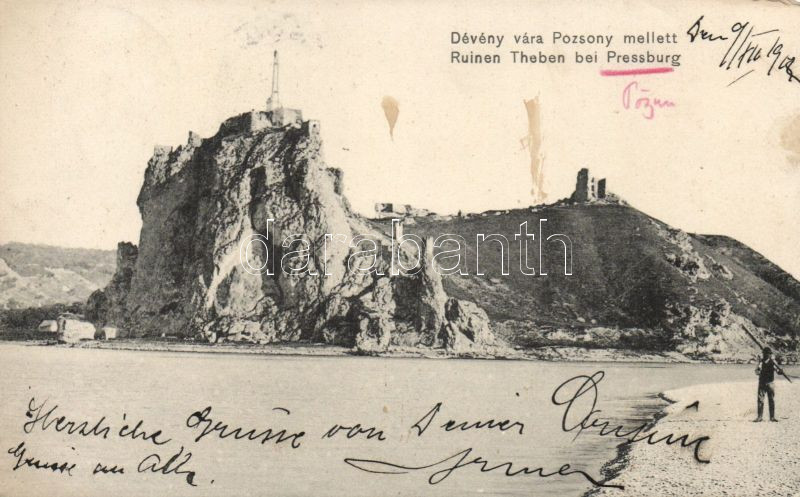 Dévény vára Pozsony mellett
Ruinen Theben bei Pressburg
Den 9/VII 1902
darabanth
Herzliche Grüsse von Deiner
Grüsse an Alle.